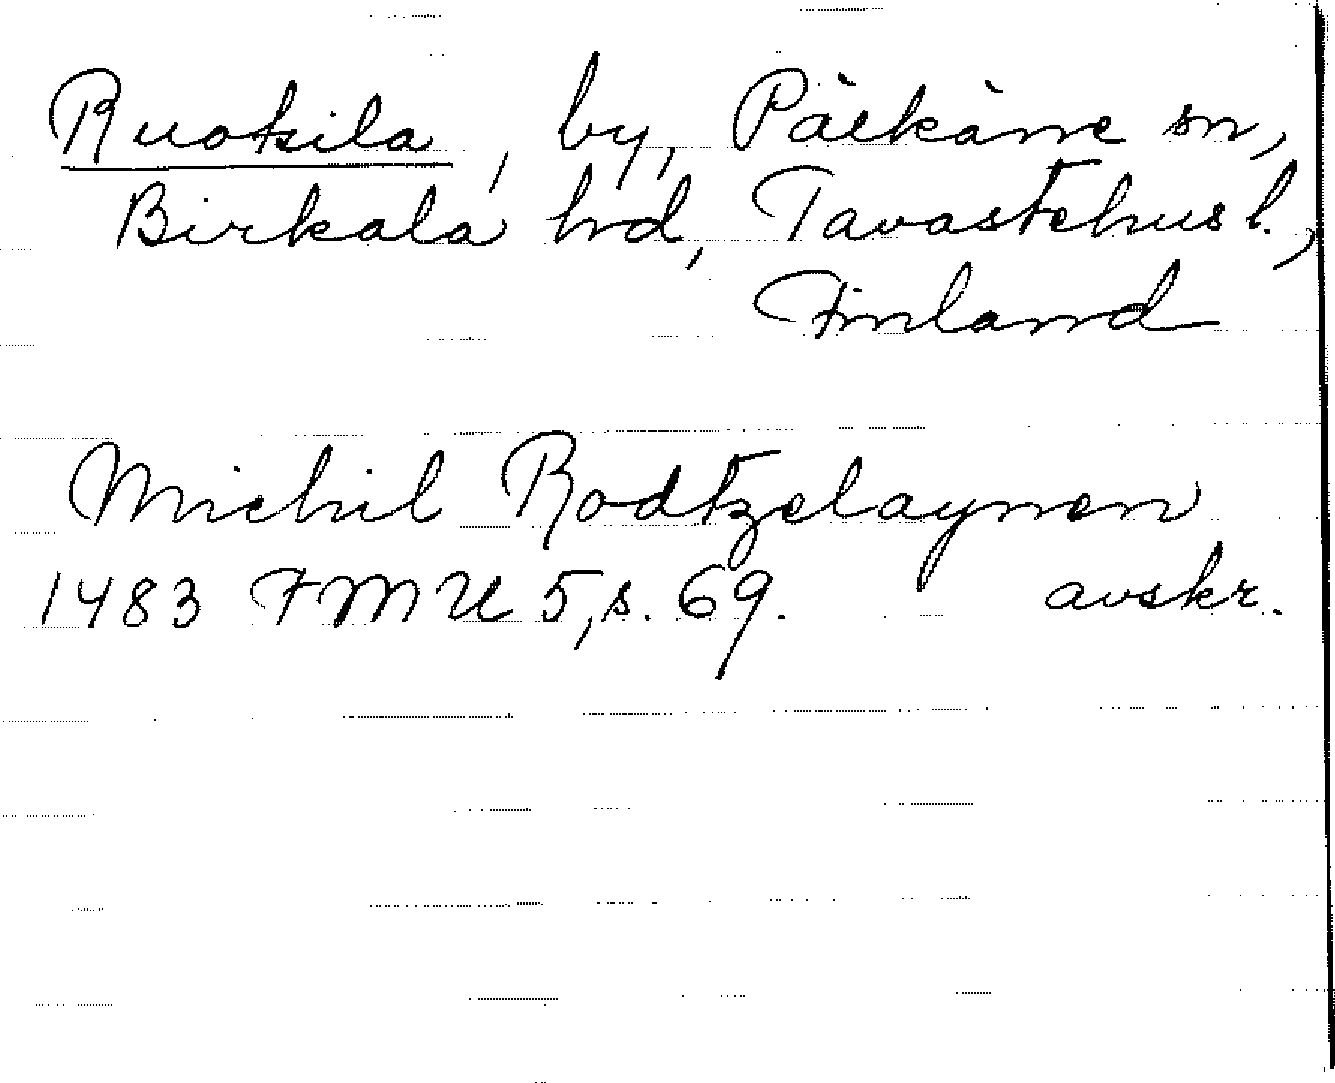 Ruotsila, by, Pälkäne sn,
Birkala hd, Tavastehus l.,
Finland
Michil Rodtzelaynen
1483 FMU 5, s. 69. avskr.